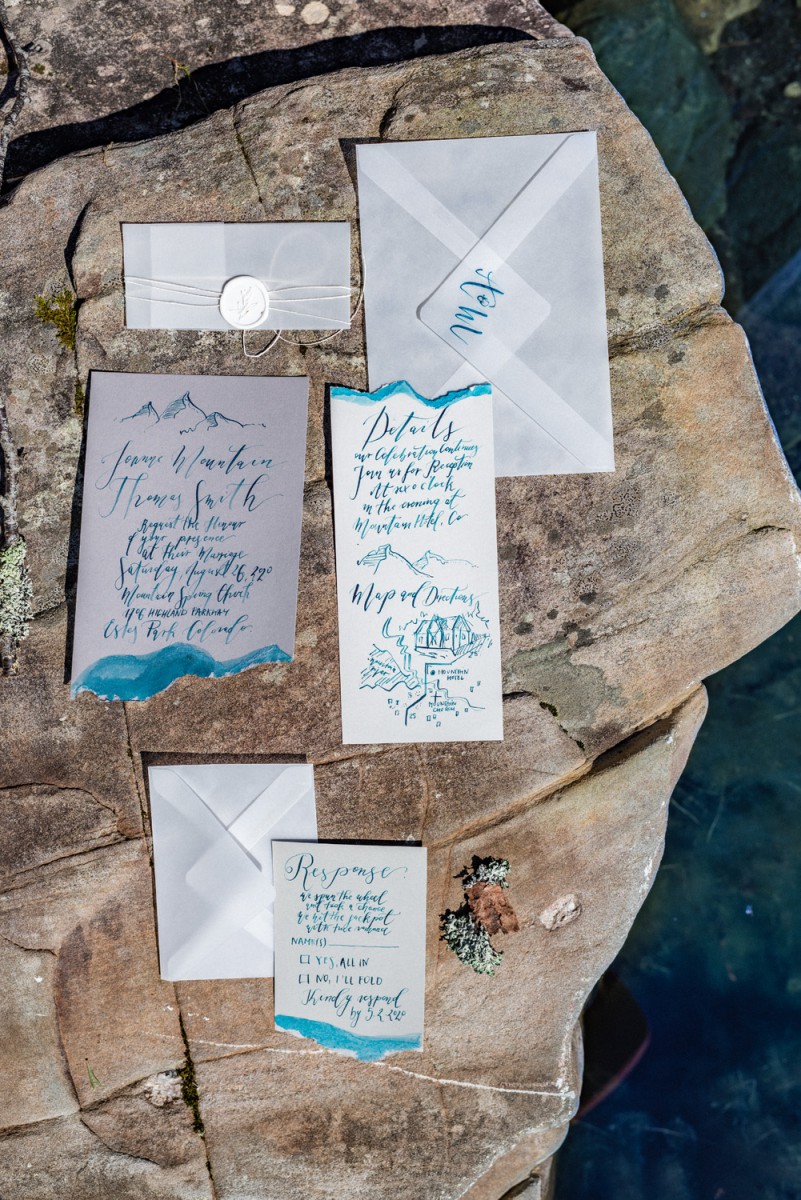 Joanne Mountain
Thomas Smith
Request the Honour
of your presence
at their Marriage
Saturday, August 26, 2020
Mountain Spring Church
HIGHLAND PARKHAM
Estes Park Colorado.
Details
our celebration continues
Join us for Reception
At six o'clock
in the evening at
Mountain Hotel, Co
Map and Directions
MOUNTAIN
HOTEL
MOUNTAIN
25
Response
we spun the wheel
and took a chance
we hit the jackpot
with true romance
NAME(S)
YES, ALL IN
NO, I'LL FOLD
Kindly respond
by 5.2.2020